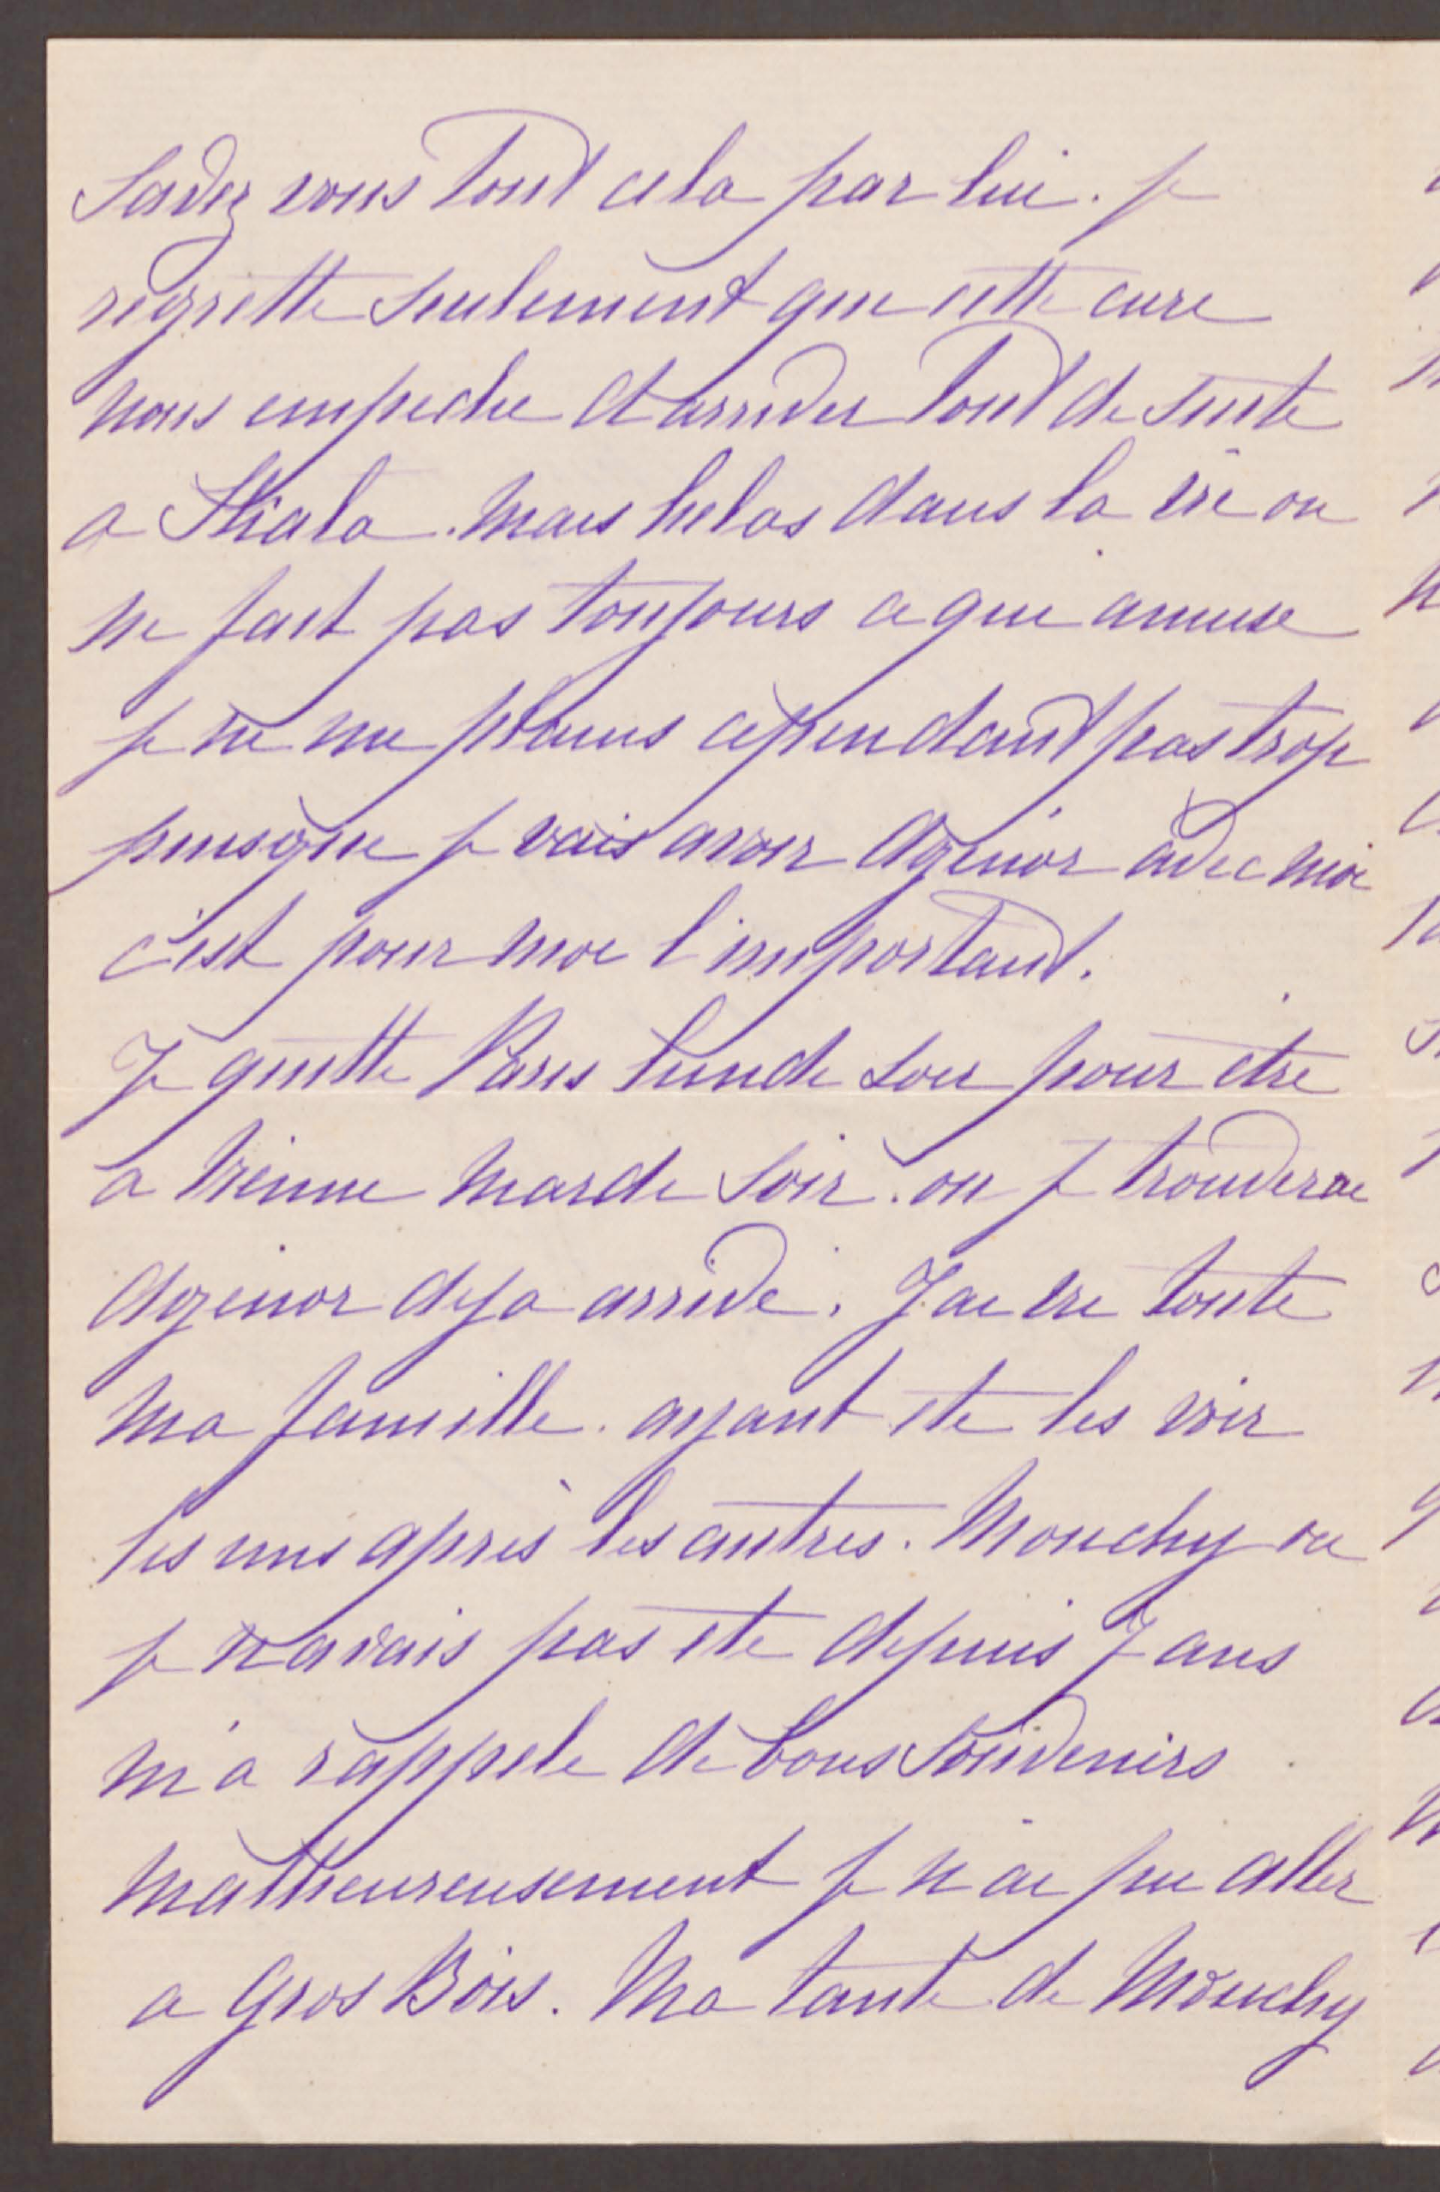 Savez vous tout cela par lui. Je
regrette seulement que cette cure
nous empeche d'arriver tout de suite
a Skala. Mais helas dans la vie on
ne fait pas toujours ce qui amuse
je ne me plains cependant pas trop
puisque je vais avoir Agénor avec moi
c'est pour moi l'important.
Je quitte Paris lundi soir pour etre
a Vienne mardi soir. ou je trouverai
Agenor deja arrivé. J'ai vu toute
ma famille. ayant ete les voir
les uns après les autres. Mouchy ou
je n'avais pas ete depuis 7 ans
m'a rappele de bons souvenirs
malheureusement je n'ai pu aller
a Gros Bois. Ma tante de Mouchy